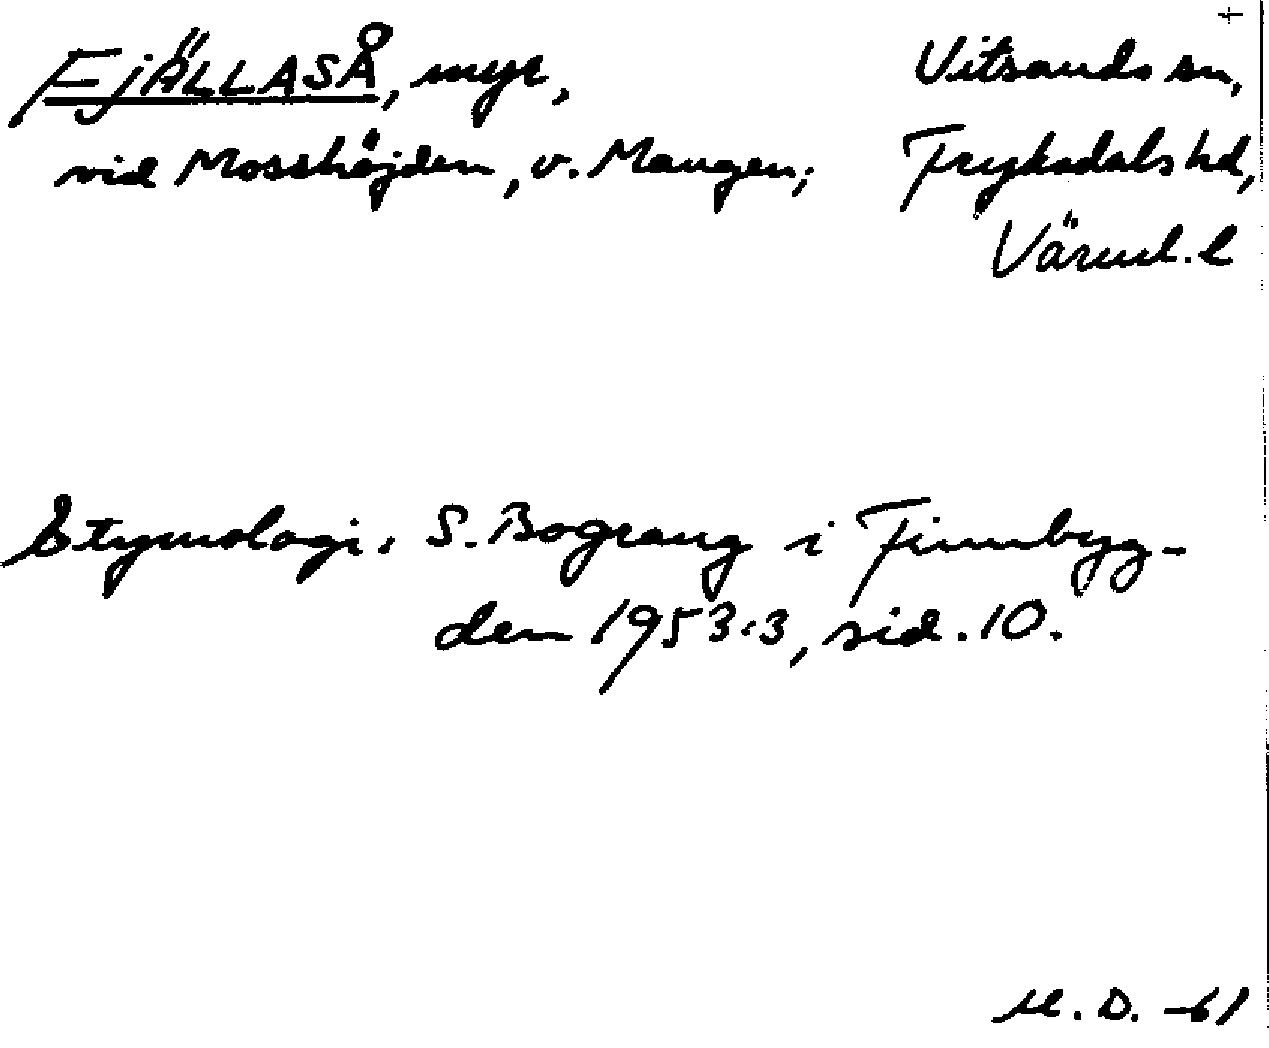 FJÄLLASÅ, myr,
vid Mosshöjden, v. Mangen;
Vitsands sn,
Fryksdals hd,
Värml. l
Etymologi, S. Bograng i Finnbyg-
den 1953:3, sid. 10.
M. D. -61